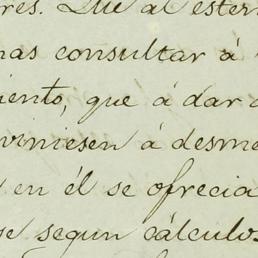 res. Que al estern
nas consultar á
iento, que á dar a
viniesen á desme
en él se ofrecia
se segun cálculos